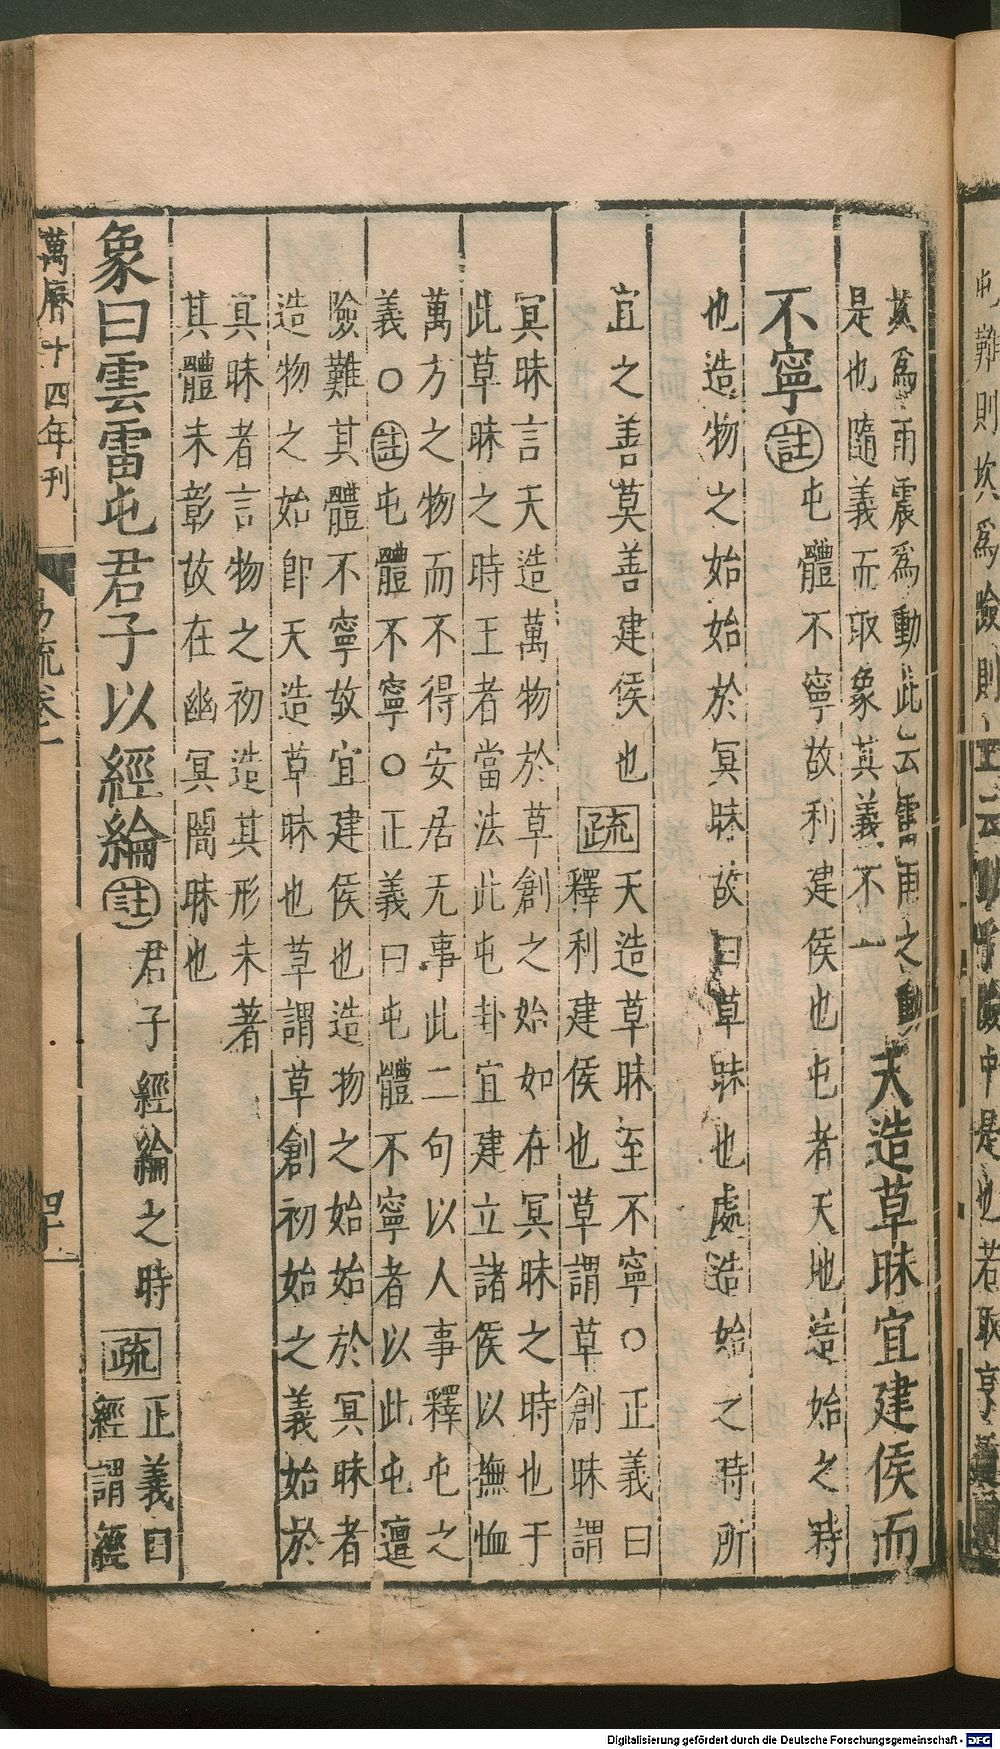 坎為雨震為動此云雷雨之動
是也隨義而取象其義不一
天造草昧宜建侯而
不寧
註
屯體不寧故利建侯也屯者天地造始之時
也造物之始始於冥昧故曰草昧也處造始之時所
宜之善莫善建侯也
疏
天造草昧至不寧○正義曰
釋利建侯也草謂草創昧謂
冥昧言天造萬物於草創之始如在冥昧之時也于
此草昧之時王者當法此屯卦宜建立諸侯以撫恤
萬方之物而不得安居无事此二句以人事釋屯之
義○註屯體不寧○正義曰屯體不寧者以此屯邅
險難其體不寧故宜建侯也造物之始始於冥昧者
造物之始即天造草昧也草謂草創初始之義始於
冥昧者言物之初造其形未著
其體未彰故在幽冥闇昧也
象曰雲雷屯君子以經綸
註
君子經綸之時
疏
正義曰
經謂經
萬曆十四年刊
易疏卷二
Digitalisierung gefördert durch die Deutsche Forschungsgemeinschaft - DFG